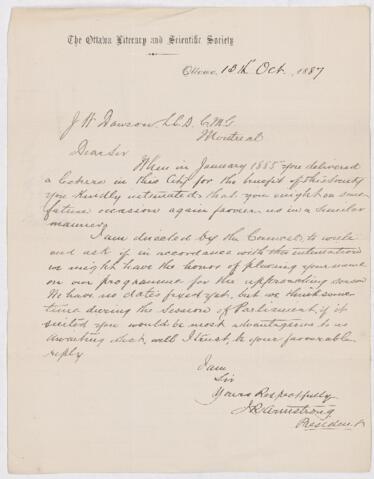 The Ottawa Literary and Scientific Society
Ottawa, 13th Oct. 1887
J W Dawson, L.L.D. C.M.G
Montreal
Dear Sir
When in January 1885 you delivered
a lecture in this City for the benefit of this Society
you kindly intimated that you might on some
future occasion again favour us in a similar
manner.
I am directed by the Council to write
and ask if in accordance with this intimation
we might have the honor of placing your name
on our programme for the approaching season
We have no dates fixed yet, but we think some
time during the Session of Parliament, if it
suited you would be most advantageous to us
Awaiting what will I trust, be your favourable
reply
I am
Sir
Yours Respectfully
Armstrong
President